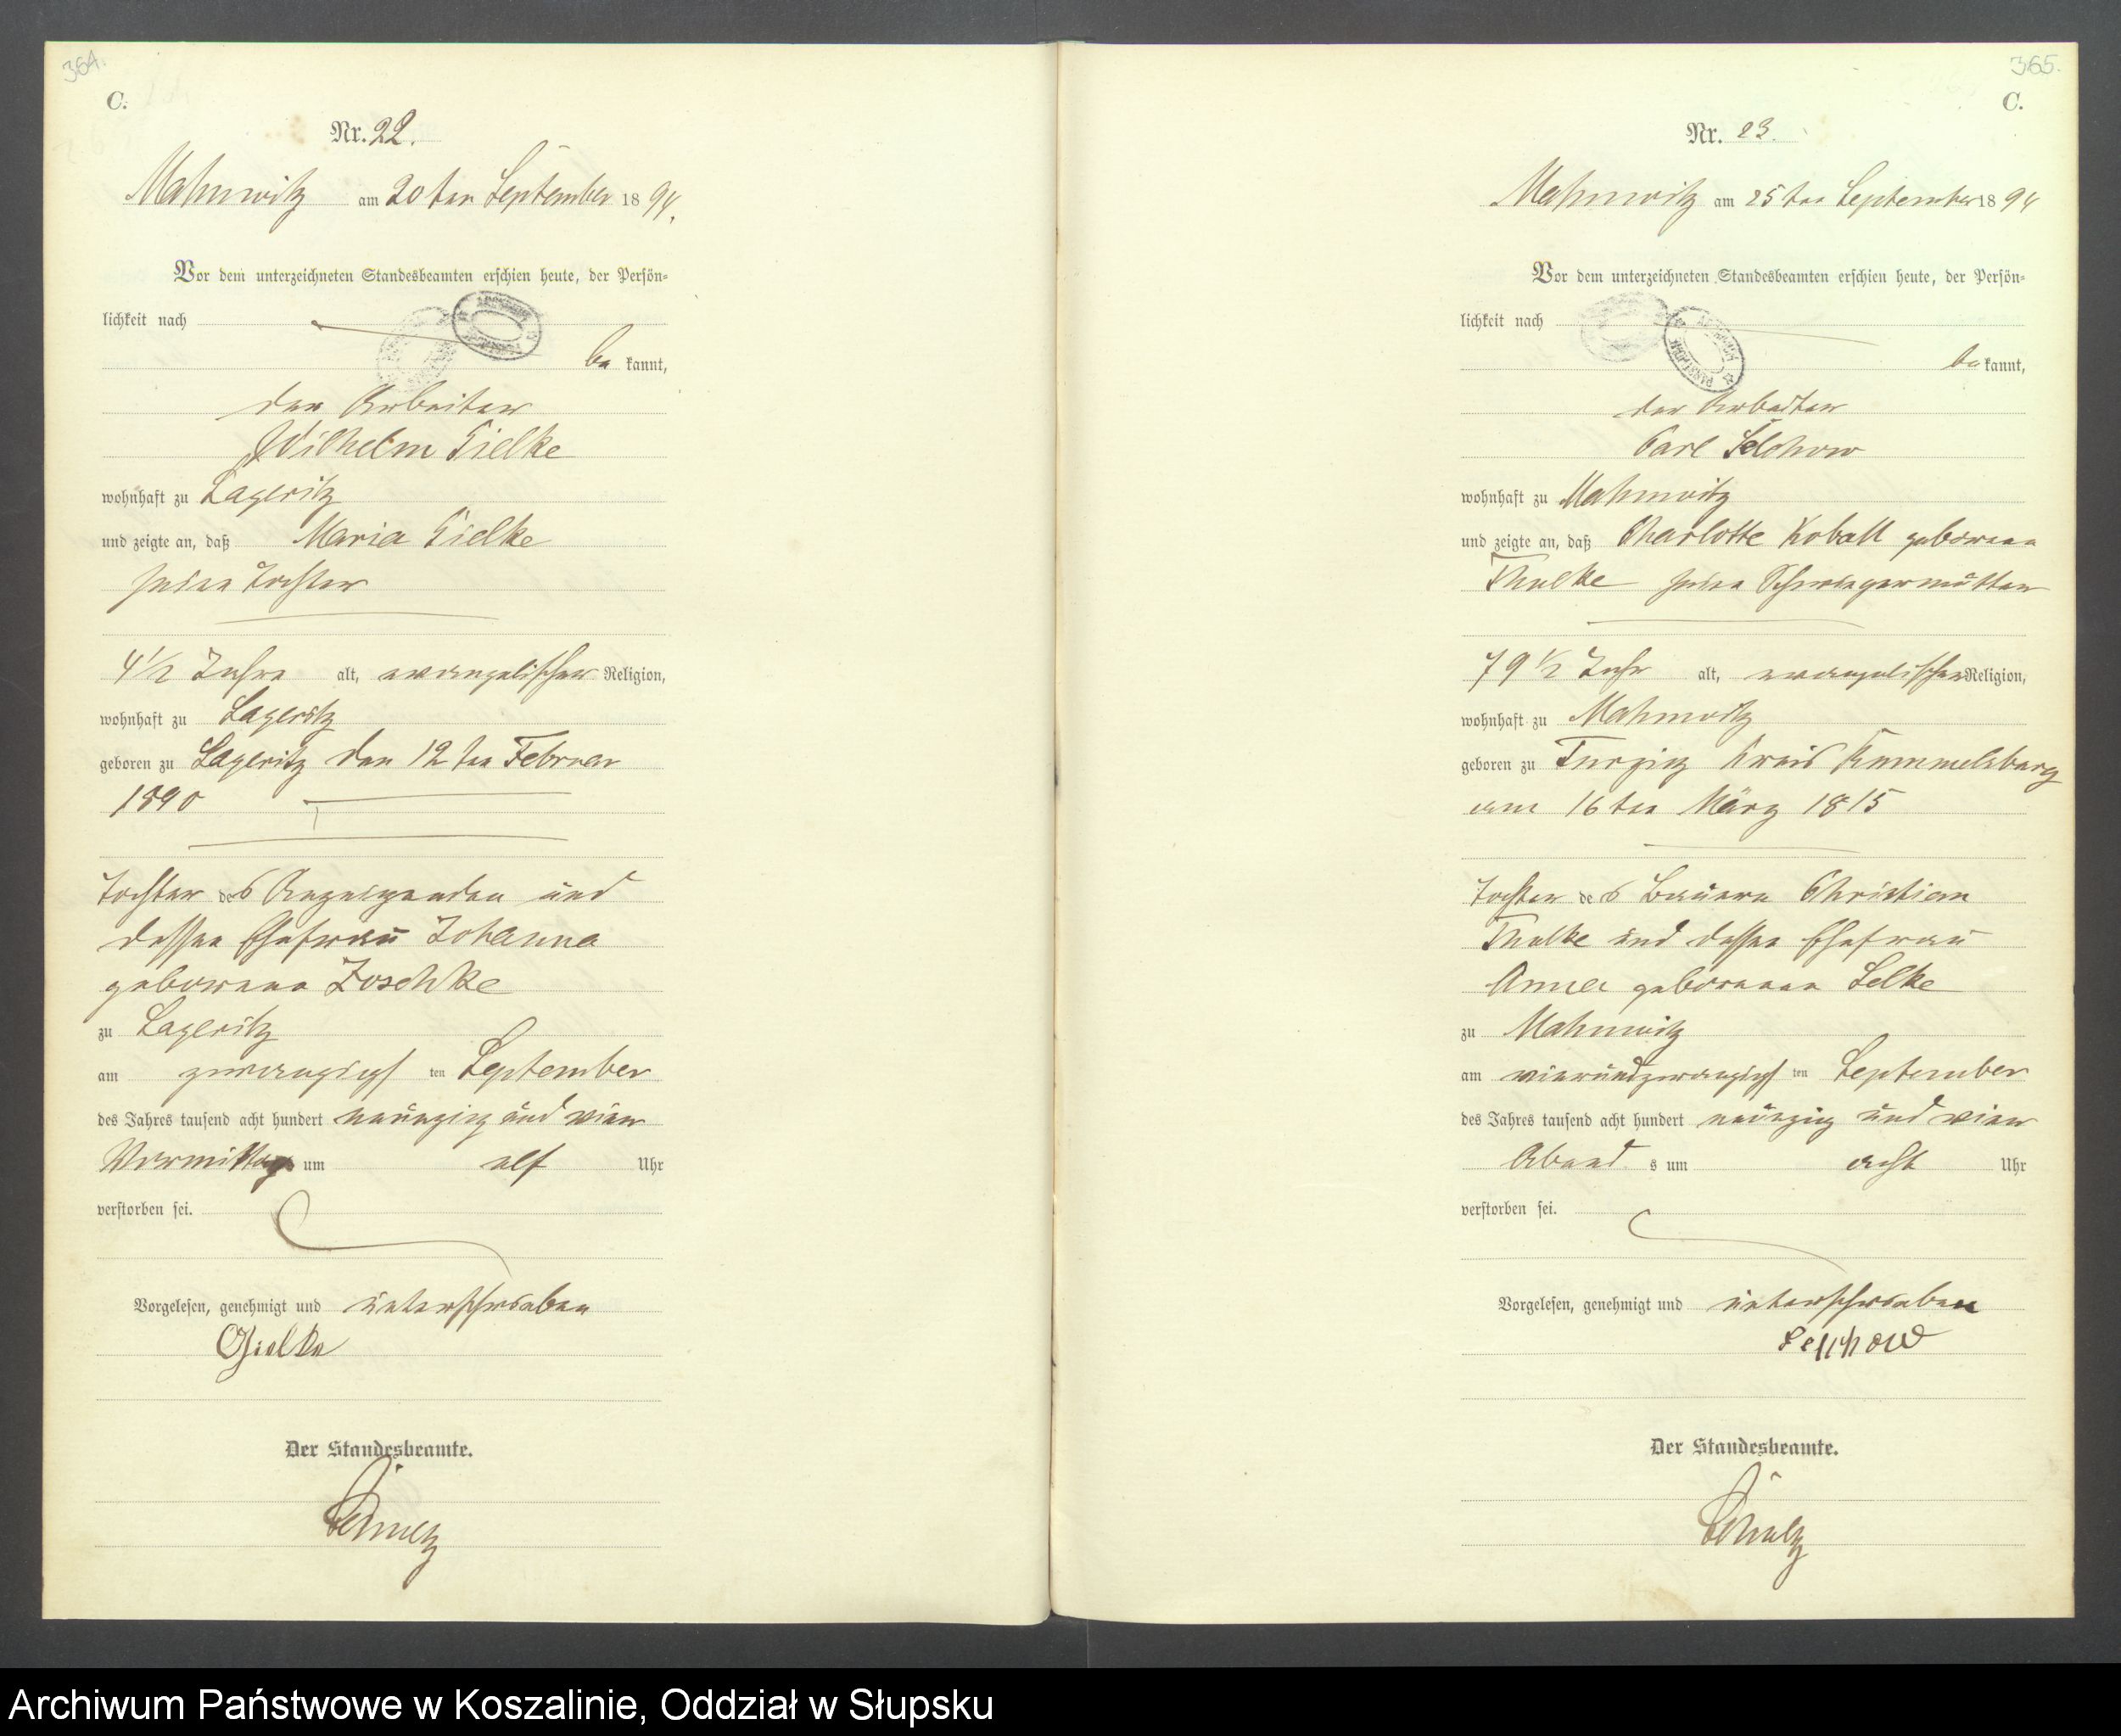 364.
C.
Nr. 22.
Mahnwitz am 20ten September 1894.
Vor dem unterzeichneten Standesbeamten erschien heute, der Persön-
lichkeit nach
be kannt,
der Arbeiter
Wilhelm Gielke
wohnhaft zu Lageritz
und zeigte an, daß Maria Gielke
seine Tochter
4 1/2 Jahre alt, evangelischer Religion,
wohnhaft zu Lageritz
geboren zu Lageritz den 12ten Februar
1890
Tochter des Anzeigenden und
dessen Ehefrau Johanna
geborene Zoschke
zu Lageritz
am zwanzigsten September
des Jahres tausend acht hundert neunzig und vier
Vormittags um elf Uhr
verstorben sei.
Vorgelesen, genehmigt und unterschrieben
Gielke
Der Standesbeamte.
Schulz
365.
C.
Nr. 23.
Mahnwitz am 25ten September 1894
Vor dem unterzeichneten Standesbeamten erschien heute, der Persön-
lichkeit nach
be kannt,
der Arbeiter
Carl Selchow
wohnhaft zu Mahnwitz
und zeigte an, daß Charlotte Koball geborene
Thulke seine Schwiegermutter
79 1/2 Jahr alt, evangelischer Religion,
wohnhaft zu Mahnwitz
geboren zu Turzig Kreis Rummelsburg
am 16ten März 1815
Tochter des Bauern Christian
Thulke und dessen Ehefrau
Anna geborenen Selke
zu Mahnwitz
am vierundzwanzigsten September
des Jahres tausend acht hundert neunzig und vier
Abends um acht Uhr
verstorben sei.
Vorgelesen, genehmigt und unterschrieben
Selchow
Der Standesbeamte.
Schulz
Archiwum Państwowe w Koszalinie, Oddział w Słupsku